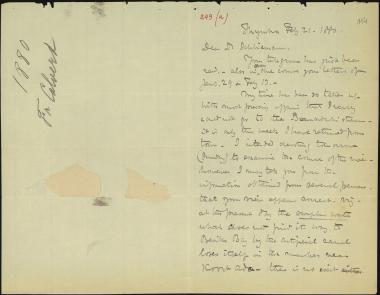 1880
Fr. Calvert
249 (a)
Feby 21. 1880.
Dear Dr. Schliemann.
Your telegram has just been
recd. - also in due course your letters of
Jany. 29 & Feb 13. -
My time has been so taken up
with most pressing affairs that I really
could not go to the
- it is only this week I have returned from
town - I intended devoting the
(Sunday) to examine the course of the
however I may tell you from the
information obtained from several persons
that your views appear correct. Viz -
at the present day the
which does not find its way to
Beshika Bay by the artificial canal
loses itself in the marshes near
Koum Kale - there is no exit either